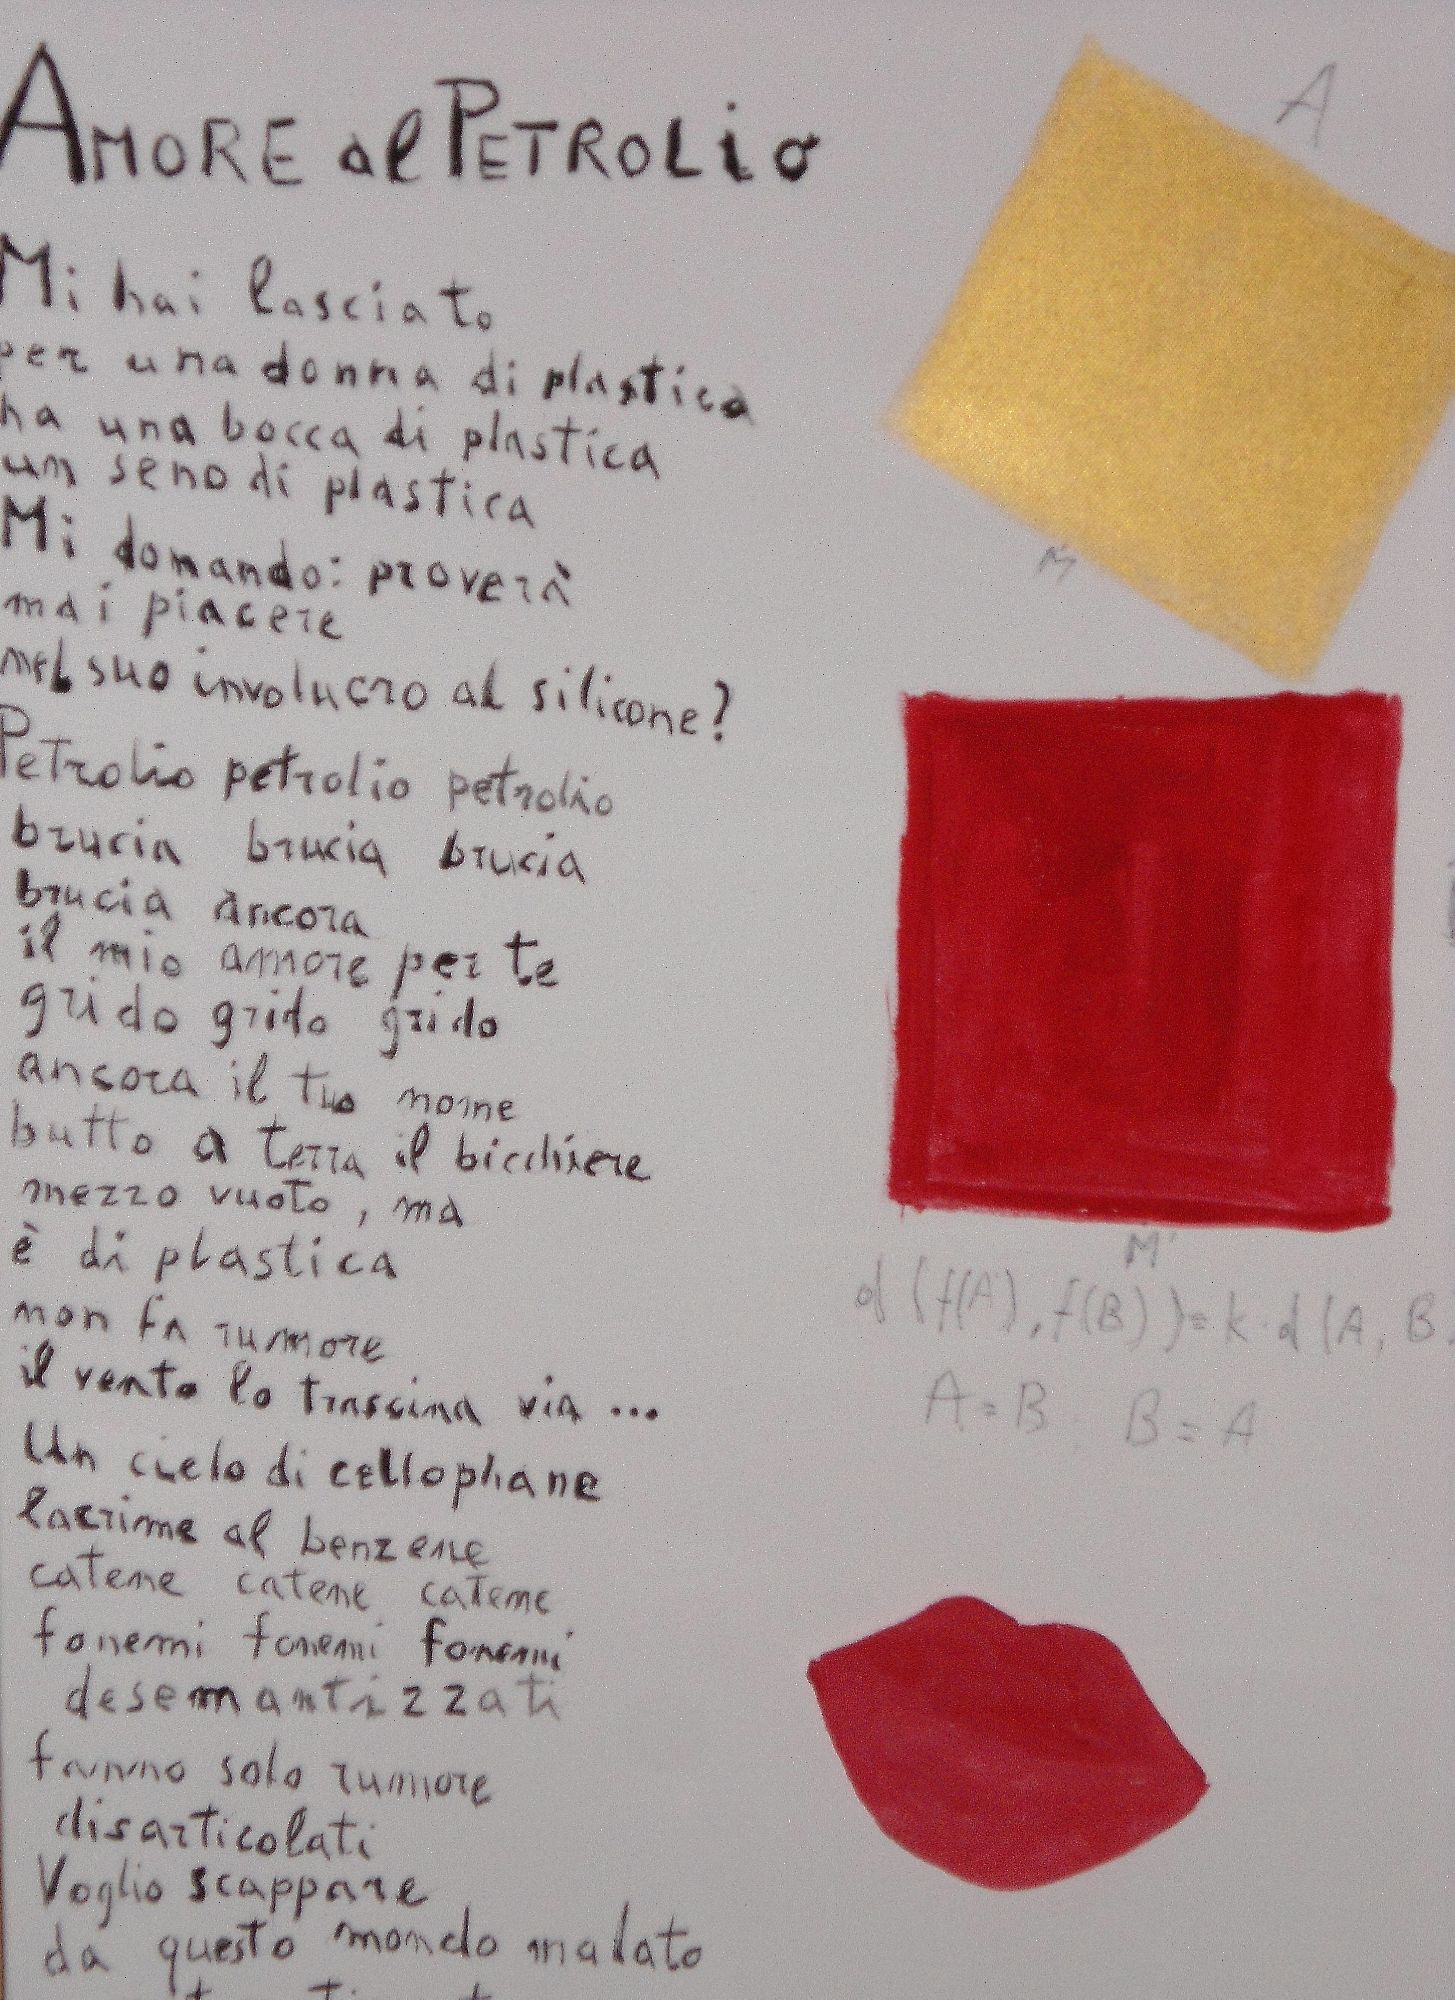 AMORE al PETROLiO
Mi hai lasciato
per una donna di plastica
ha una bocca di plastica
un seno di plastica
Mi domando: proverà
mai piacere
nel suo involucro al silicone?
Petrolio petrolio petrolio
brucia brucia brucia
brucia ancora
il mio amore per te
grido grido grido
ancora il tuo nome
butto a terra il bicchiere
mezzo vuoto, ma
è di plastica
non fa rumore
il vento lo trascina via ...
Un cielo di cellophane
lacrime al benzene
catene catene catene
fonemi fonemi fonemi
desemantizzati
fanno solo rumore
disarticolati
Voglio scappare
da questo mondo malato
A
M
M'
d (f(A), f(B)) = k · d (A, B
A = B B = A